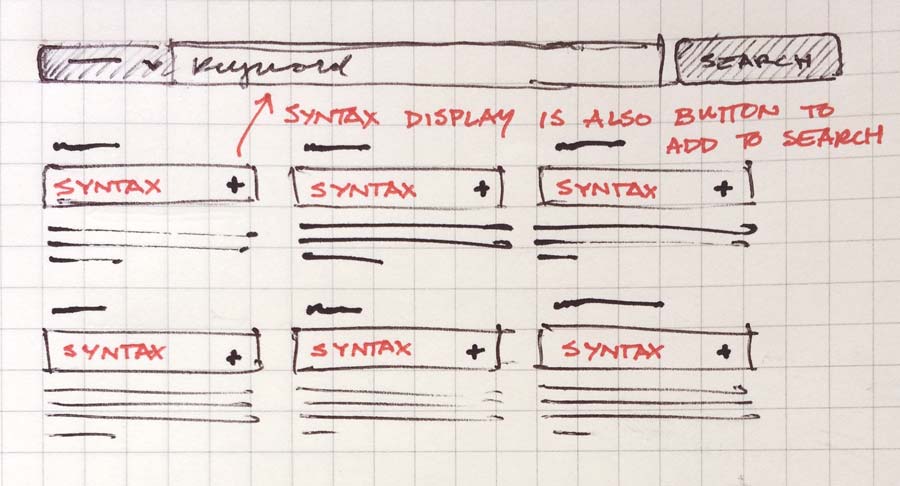 Keyword
SEARCH
SYNTAX DISPLAY IS ALSO BUTTON TO
ADD TO SEARCH
SYNTAX +
SYNTAX +
SYNTAX +
SYNTAX +
SYNTAX +
SYNTAX +